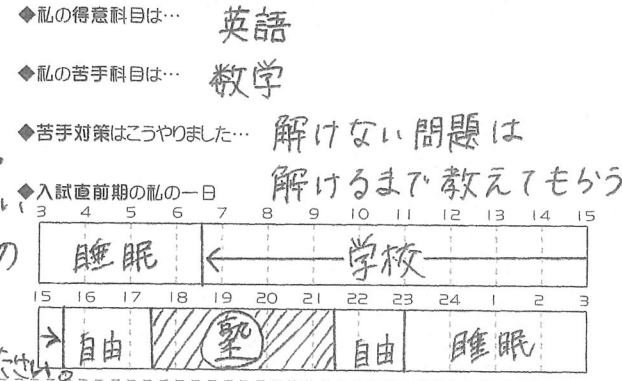 ◆私の得意科目は… 英語
◆私の苦手科目は… 数学
◆苦手対策はこうやりました… 解けない問題は
解けるまで教えてもらう
◆入試直前期の私の一日
3 4 5 6 7 8 9 10 11 12 13 14 15
睡眠 学校
15 16 17 18 19 20 21 22 23 24 1 2 3
自由 塾 自由 睡眠